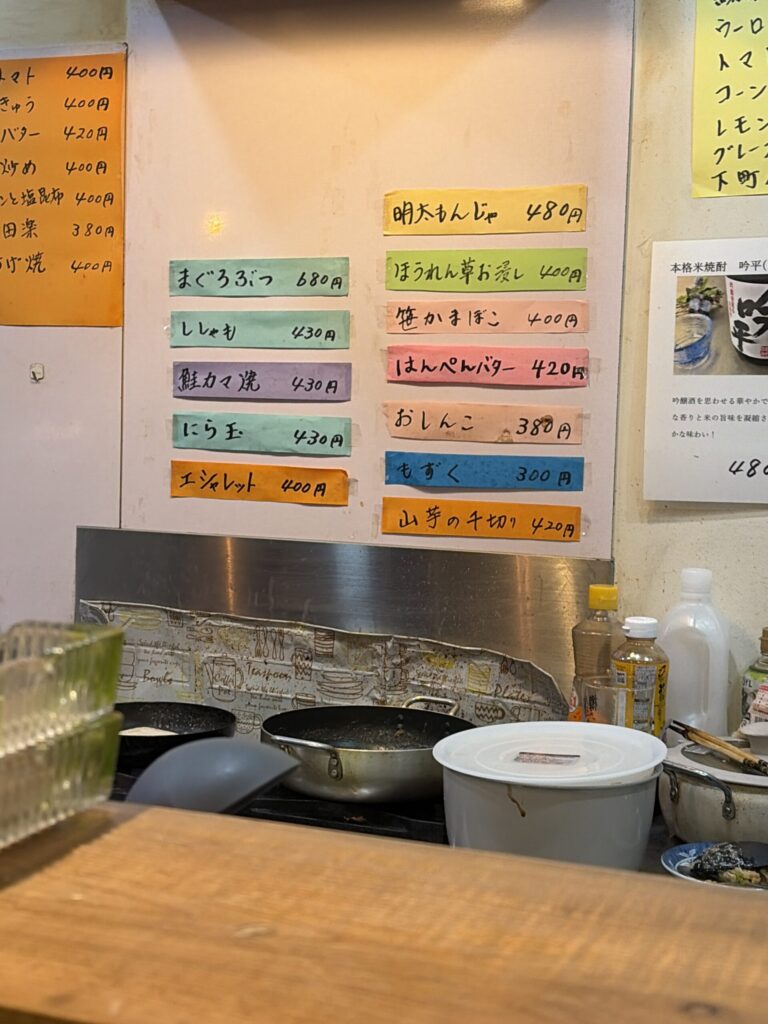 トマト 400円
きゅう 400円
バター 420円
炒め 400円
と塩昆布 400円
田楽 380円
げ焼 400円
まぐろぶつ 680円
ししゃも 430円
鮭カマ焼 430円
にら玉 430円
エシャレット 400円
明太もんじゃ 480円
ほうれん草お浸し 400円
笹かまぼこ 400円
はんぺんバター 420円
おしんこ 380円
もずく 300円
山芋の千切り 420円
ウーロ
トマ
コーン
レモン
グレー
下町
本格米焼酎 吟平(
吟平
吟醸酒を思わせる華やかで
な香りと米の旨味を凝縮さ
かな味わい！
480
Teaspoon
Bowls